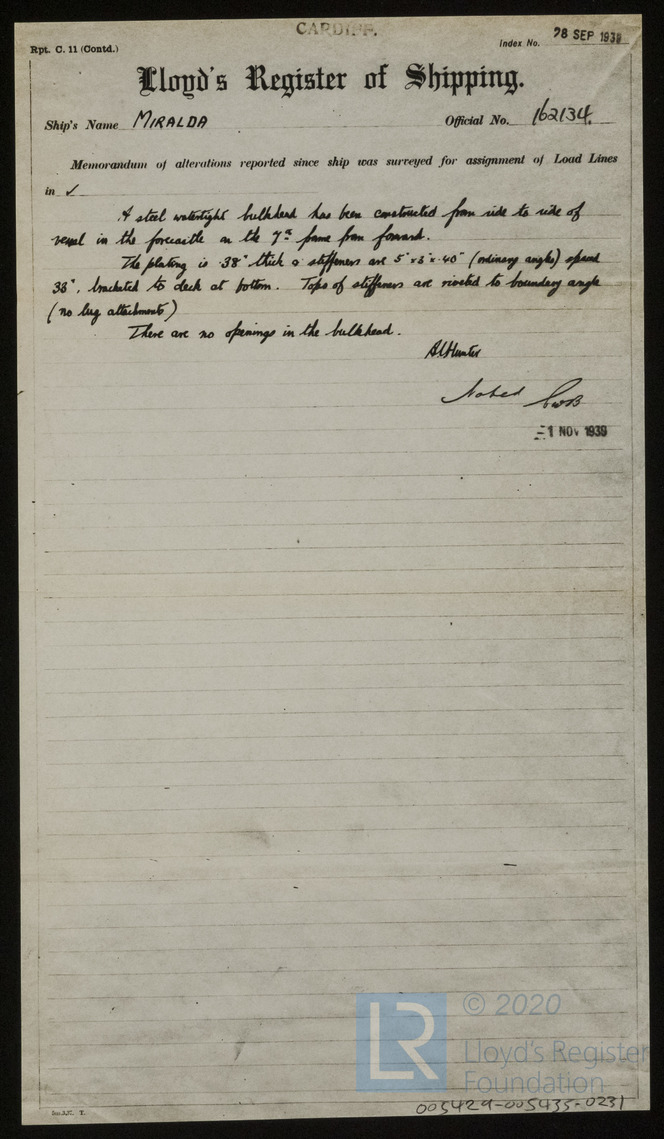 CARDIFF.
Rpt. C. 11 (Contd.)
Index No.
28 SEP 1939
Lloyd's Register of Shipping.
Ship's Name MIRALDA
Official No. 162134.
Memorandum of alterations reported since ship was surveyed for assignment of Load Lines
in ✓
A steel watertight bulkhead has been constructed from side to side of
vessel in the forecastle on the 7th frame from forward.
The plating is .38" thick & stiffeners are 5" x 3" x .40" (ordinary angles) spaced
38", bracketed to deck at bottom. Tops of stiffeners are riveted to boundary angle
(no lug attachments)
There are no openings in the bulkhead.
Hunter
Noted
-1 NOV 1939
LR
© 2020
Lloyd's Register
Foundation
005429-005435-0231